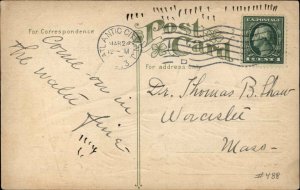 For Correspondence
Post
Card
For address only
ATLANTIC CITY
MAR 24
U.S. POSTAGE
1 CENT 1
Come on in
the water
fine
Dr. Thomas B. Shaw
Worcester
Mass-
#488